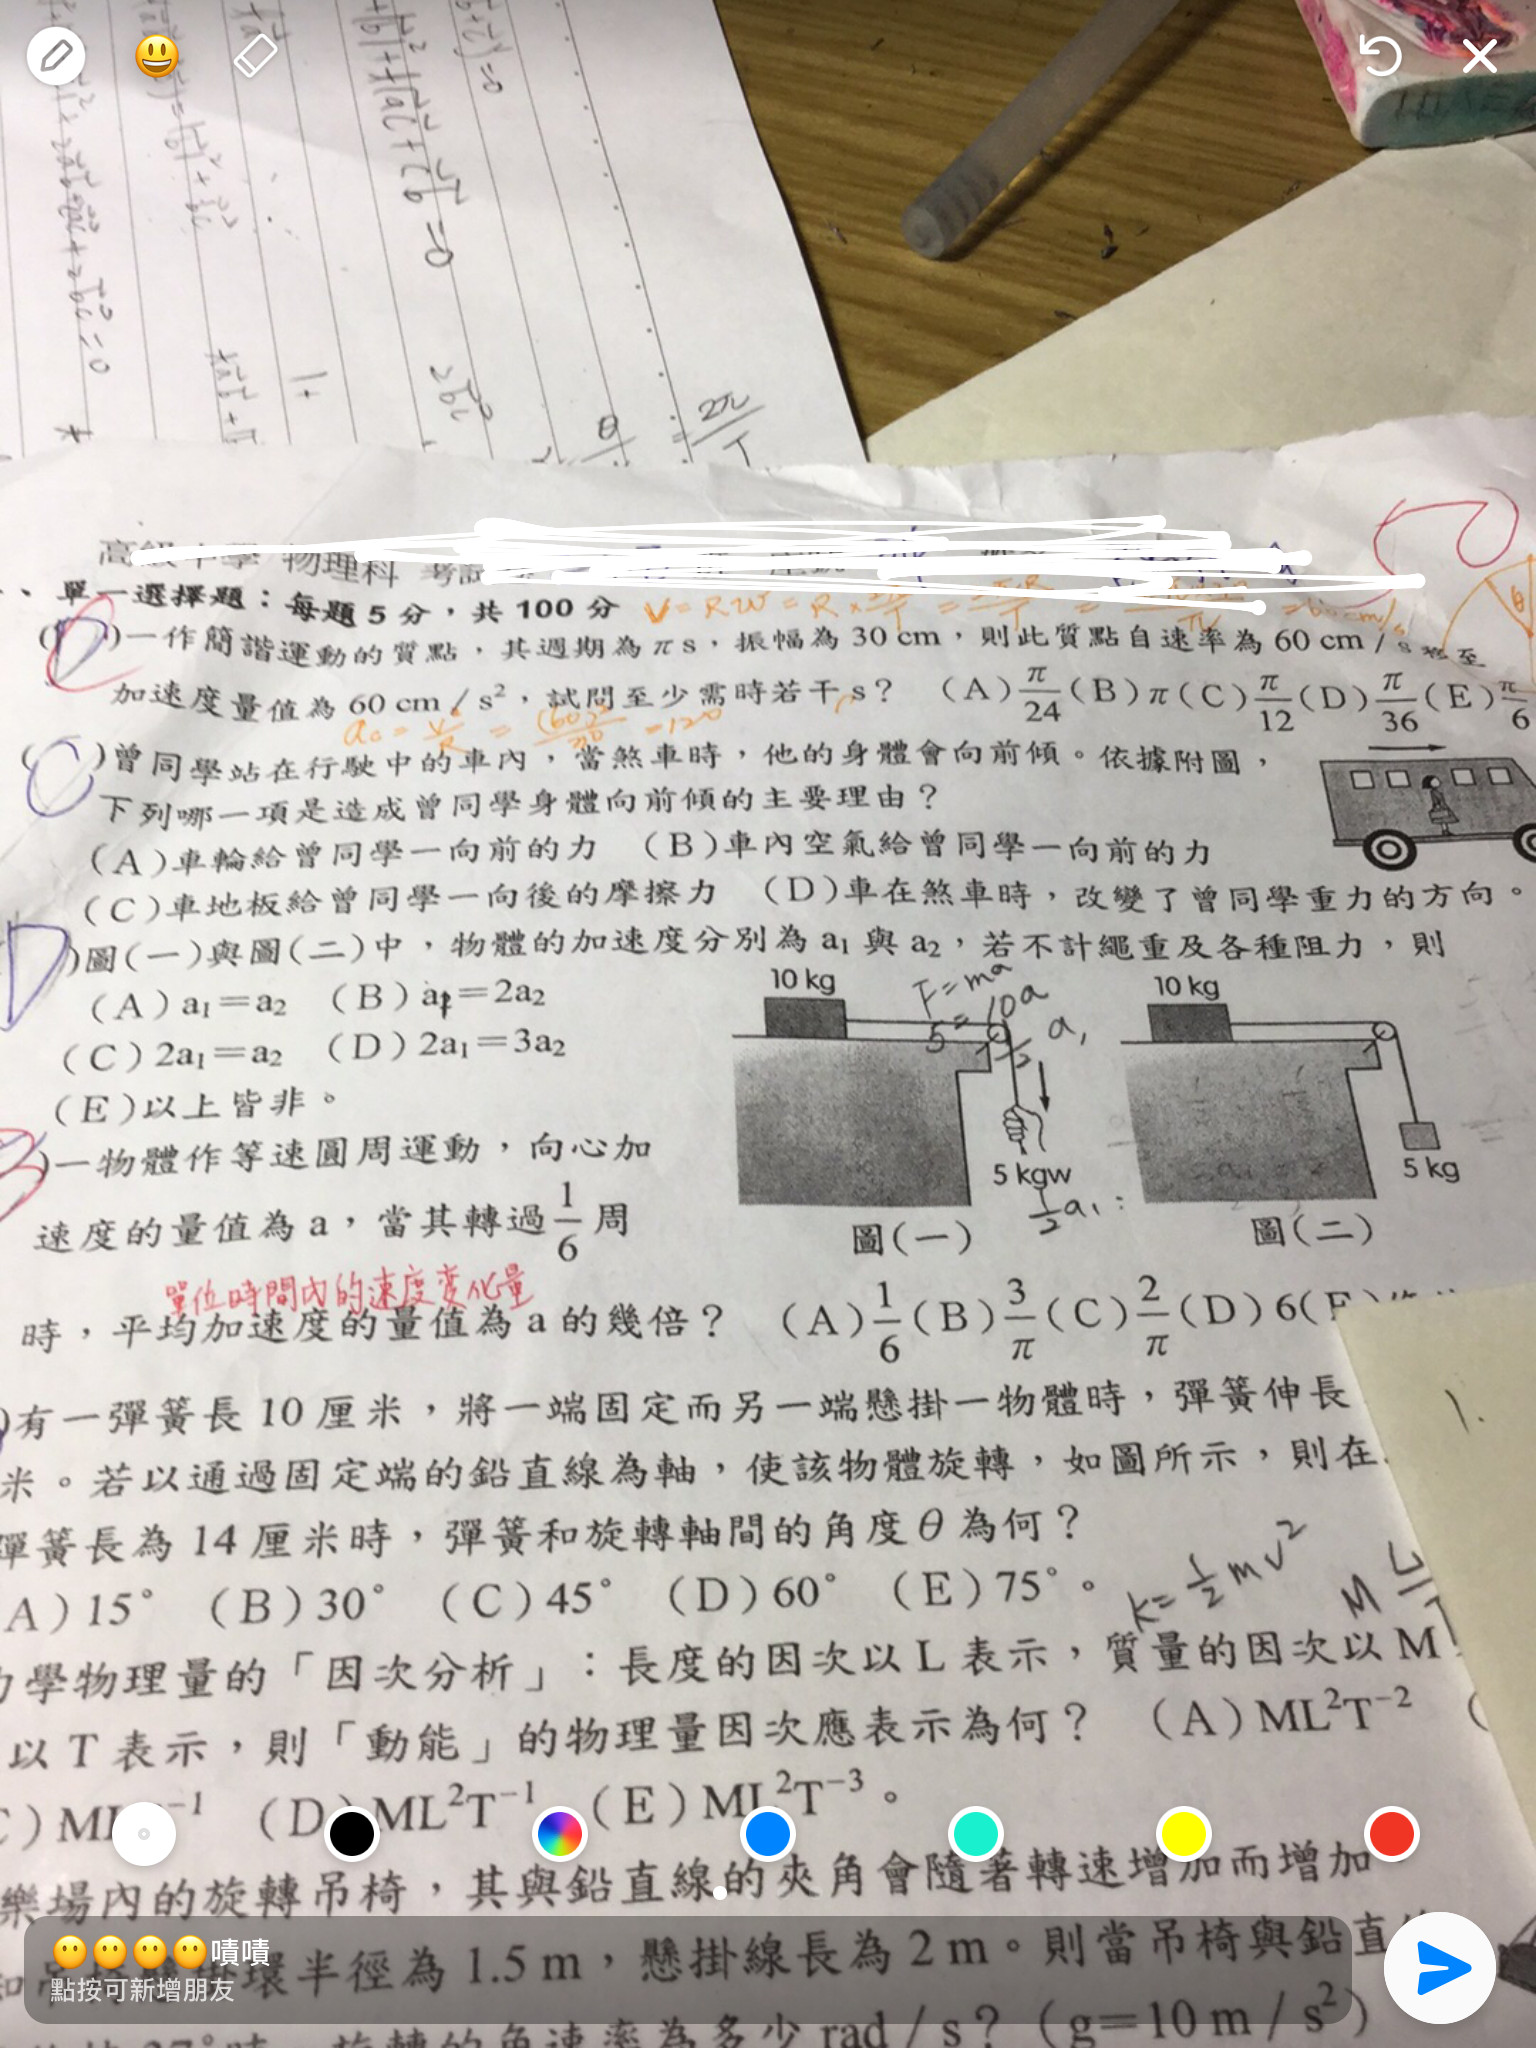 +2bc=0
2bc
θ
=2π/T
高級中學 物理科 考試
、單一選擇題：每題 5 分，共 100 分
V=Rω=R×
=60cm/s
(D)一作簡諧運動的質點，其週期為 π s，振幅為 30 cm，則此質點自速率為 60 cm / s 移至
加速度量值為 60 cm / s²，試問至少需時若干 s？ (A)π/24(B)π(C)π/12(D)π/36(E)π/6
=120
(C)曾同學站在行駛中的車內，當煞車時，他的身體會向前傾。依據附圖，
下列哪一項是造成曾同學身體向前傾的主要理由？
(A)車輪給曾同學一向前的力 (B)車內空氣給曾同學一向前的力
(C)車地板給曾同學一向後的摩擦力 (D)車在煞車時，改變了曾同學重力的方向。
D)圖(一)與圖(二)中，物體的加速度分別為 a₁ 與 a₂，若不計繩重及各種阻力，則
(A)a₁=a₂ (B)a₁=2a₂
(C)2a₁=a₂ (D)2a₁=3a₂
(E)以上皆非。
10 kg
F=ma
5=10a
a₁
5 kgw
½a₁:
圖(一)
10 kg
5 kg
圖(二)
)一物體作等速圓周運動，向心加
速度的量值為 a，當其轉過1/6周
單位時間內的速度變化量
時，平均加速度的量值為 a 的幾倍？ (A)1/6(B)3/π(C)2/π(D)6(E)
)有一彈簧長 10 厘米，將一端固定而另一端懸掛一物體時，彈簧伸長
米。若以通過固定端的鉛直線為軸，使該物體旋轉，如圖所示，則在
彈簧長為 14 厘米時，彈簧和旋轉軸間的角度 θ 為何？
A)15° (B)30° (C)45° (D)60° (E)75°。
k=½mv²
M L/T
力學物理量的「因次分析」：長度的因次以 L 表示，質量的因次以 M
以 T 表示，則「動能」的物理量因次應表示為何？ (A)ML²T⁻² (
C)ML⁻¹ (D)ML²T⁻¹ (E)ML²T⁻³。
樂場內的旋轉吊椅，其與鉛直線的夾角會隨著轉速增加而增加
環半徑為 1.5 m，懸掛線長為 2 m。則當吊椅與鉛直
37°時，旋轉的角速率為多少 rad / s？(g=10 m / s²)
😶😶😶😶嘖嘖
點按可新增朋友